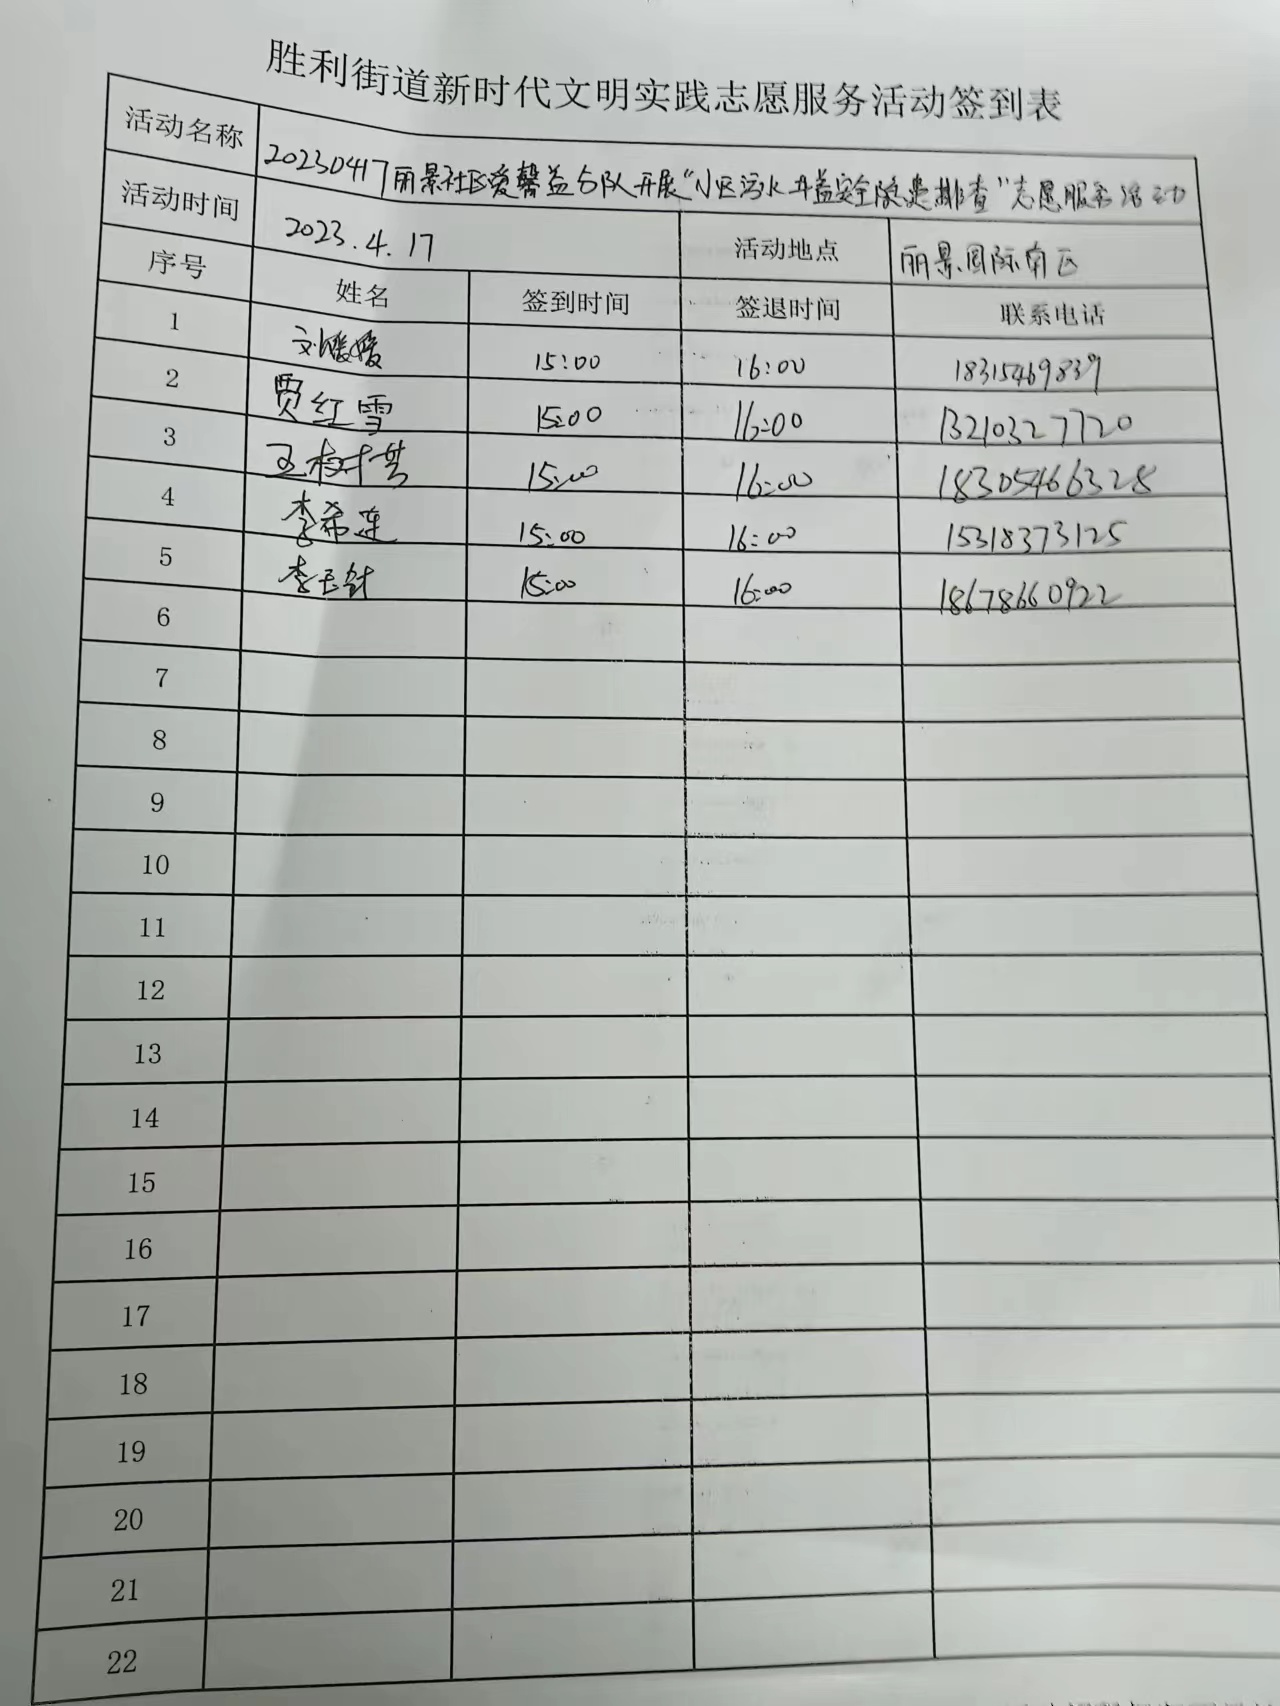 胜利街道新时代文明实践志愿服务活动签到表
活动名称 20230417丽景社区爱馨益分队开展“小区污水井盖安全隐患排查”志愿服务活动
活动时间 2023.4.17 活动地点 丽景国际南区
序号 姓名 签到时间 签退时间 联系电话
1 刘媛媛 15:00 16:00 18315469839
2 贾红雪 15:00 16:00 13210327720
3 15:00 16:00 18305466328
4 李希莲 15:00 16:00 15318373125
5 李玉针 15:00 16:00 18678660922
6
7
8
9
10
11
12
13
14
15
16
17
18
19
20
21
22